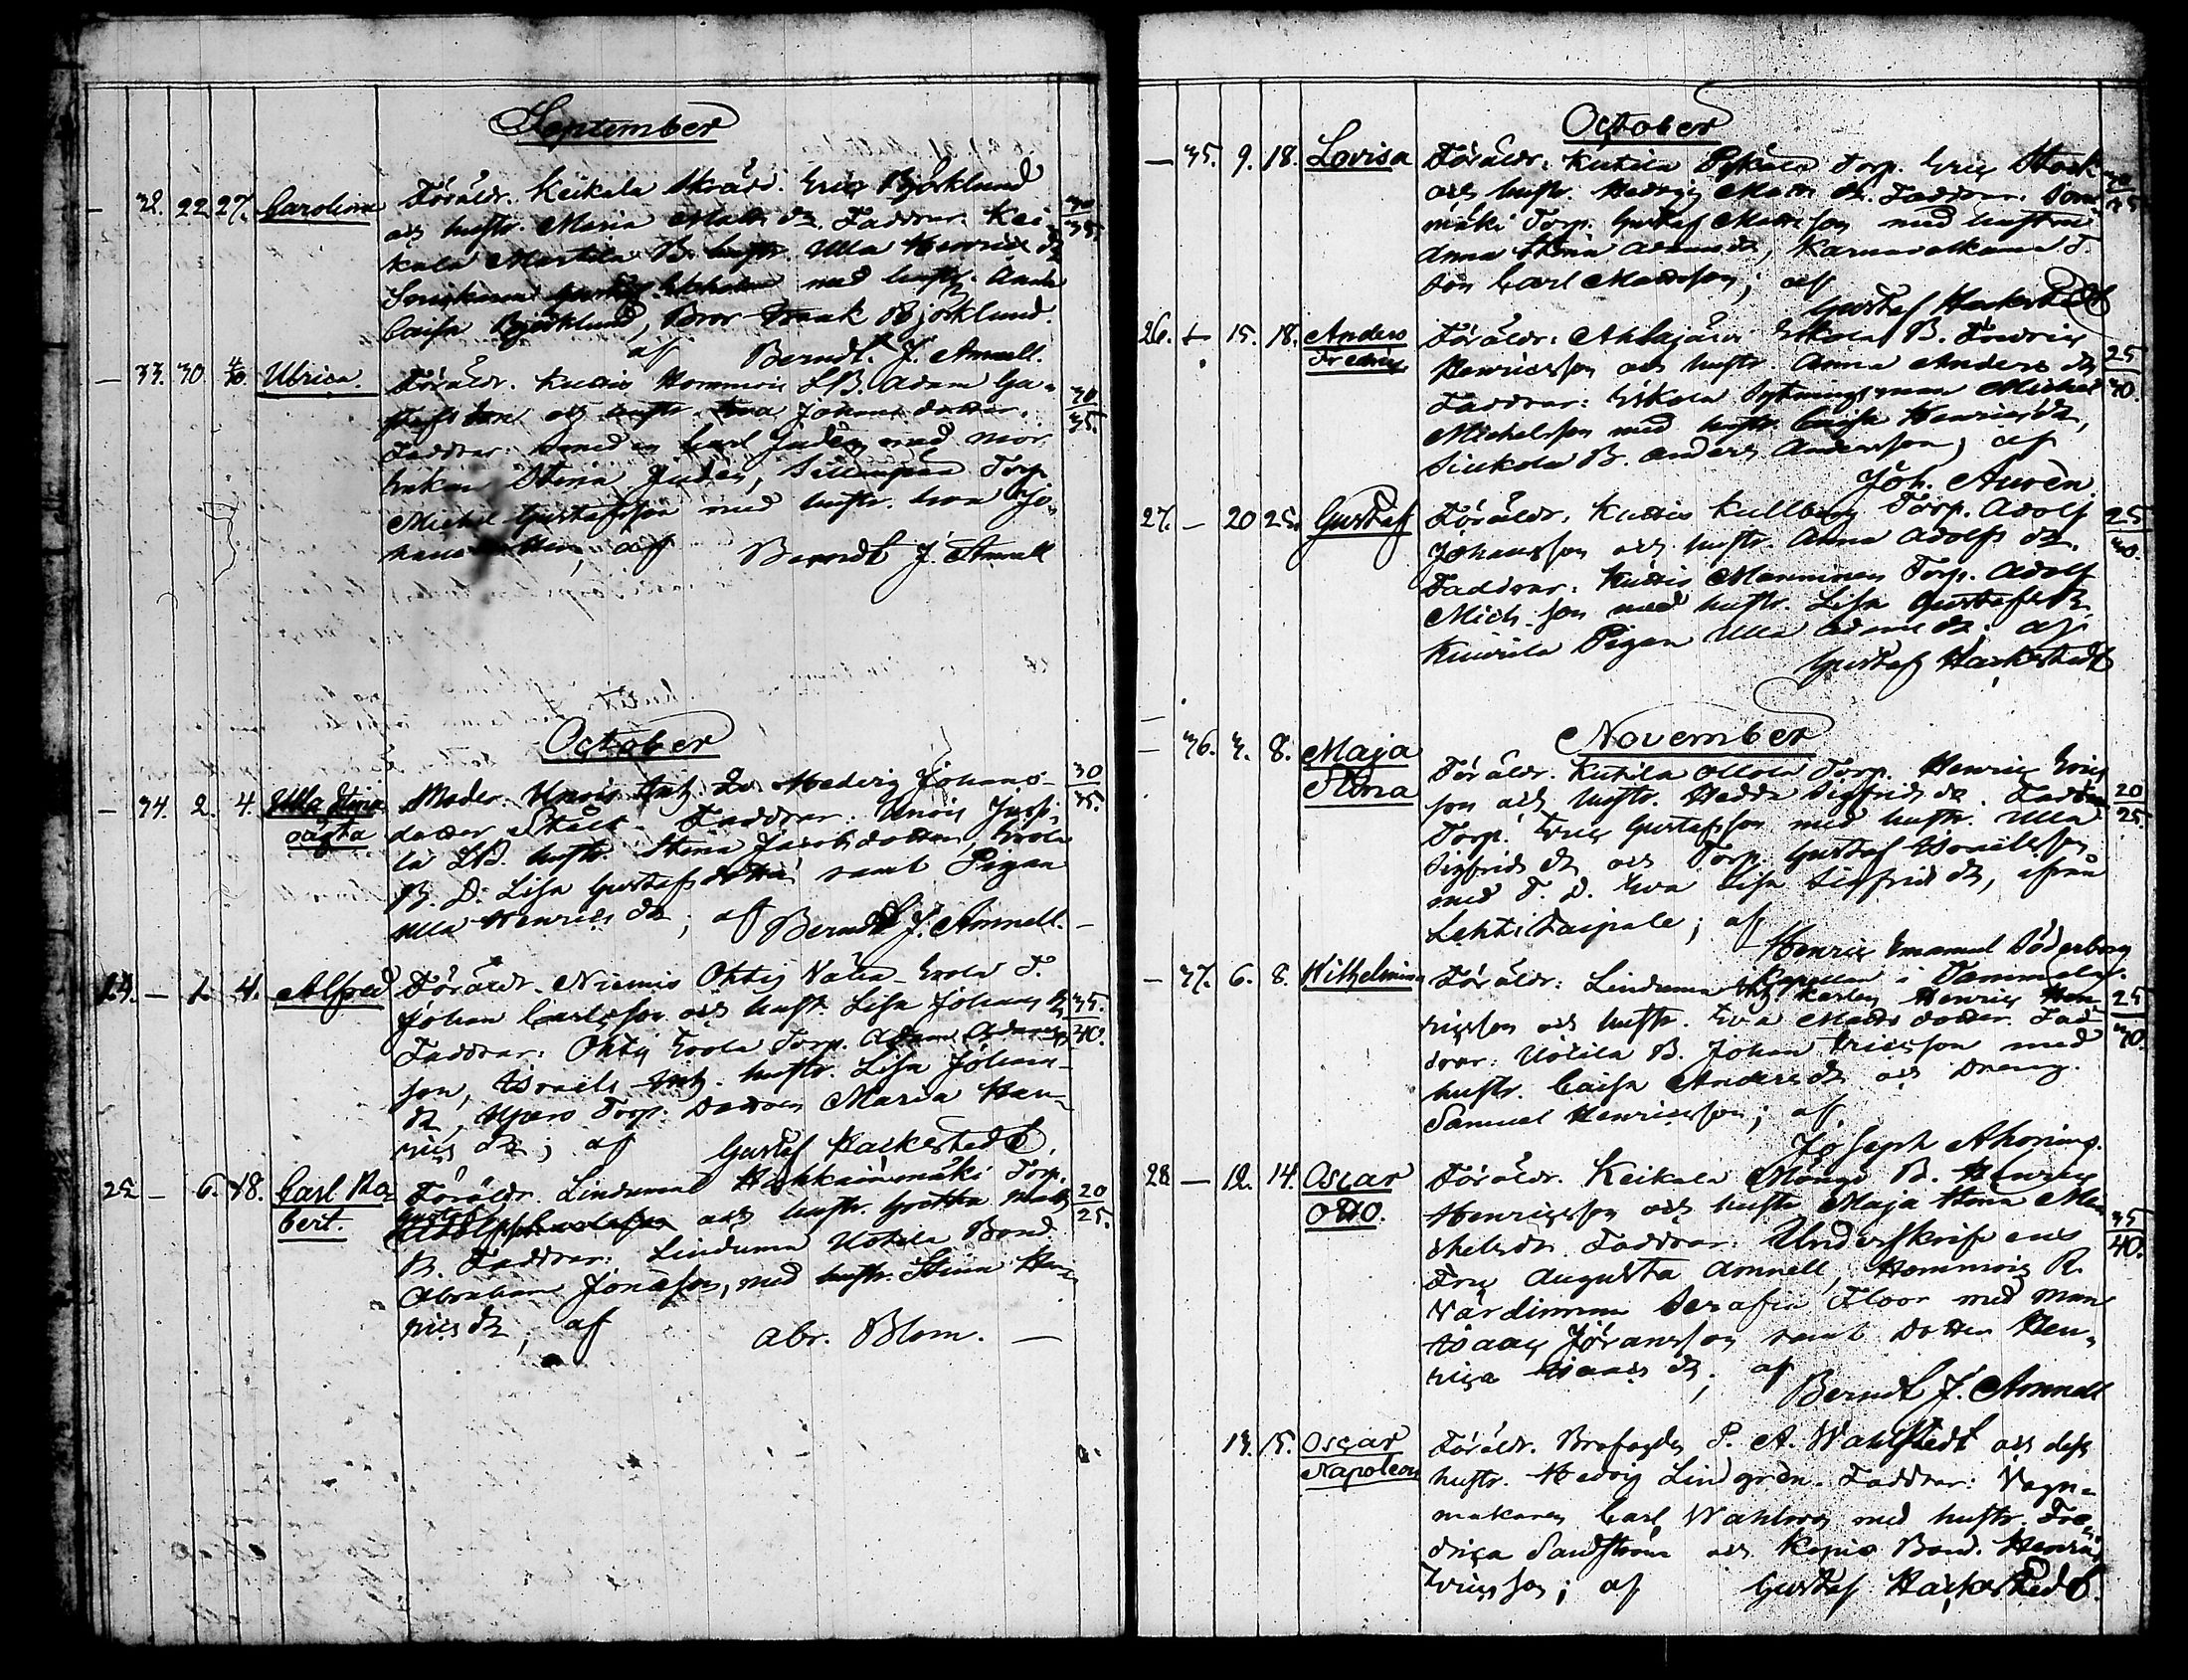 September
— 32. 22 27. Carolina Föräldr. Keikala Skrädd. Eric Björklund 30/35
och hustr. Maria Matts dr. Faddrar. Kei-
kala Martila B. hustr. Ulla Henrics dr
med hustr. Anna
Caisa Björklund, Bror Isaak Björklund.
af Berndt J. Amnell.
— 33. 30 4/10 Ulrica. Föräldr. Kuttis Hommois LB. Adam Gu- 30/35.
stafs son och hustr. Eva Johans dotter.
Faddrar: Smeden Carl Judén med mor
Stina Judén, Sillanpää Torp.
Michel Gustafsson med hustr. Eva Jo-
hans; af Berndt J. Amnell
October
— 34. 2. 4. Ulla Stina oägta Moder. Unois Inh. Dr Hedvig Johans- 30/35.
dotter Stålt. Faddrar: Unois Jussi-
la LB. hustr. Stina Jacobsdotter, Erola
B. D. Lisa Gustafsdotter samt Pigan
Ulla Henrics dr; af Berndt J. Amnell. —
24. — 2. 4. Alfred Föräldr. Niemis Ohtis Erola T. 35./40.
Johan Carlsson och hustr. Lisa Johans dr
Faddrar: Ohtis Erola Torp. Adam Adams-
son, Israels Inh. hustr. Lisa Johans
dr, Torp. Dottren Maria Hen-
rics dr; af Gustaf Hackstedt.
25 — 6. 18. Carl Robert. Föräldr. Linduma Hakkainmäki Torp. 20/25.
Gustaf och hustr. Greta Matts
dr. Faddrar: Linduma Uotila Bond.
Abraham Jonasson, med hustr. Stina Hen-
rics dr; af Abr. Blom. —
October
— 35. 9. 18. Lovisa Föräldr. Kutila Torp. Eric Stock
och hustr. Hedvig Matts dr. Faddrar.
mäki Torp. Gustaf Mattsson med hustru
Anna Stina Adams dr, T.
son Carl Mattsson; af
Gustaf Hackstedt
26. — 15. 18. Anders Fredric Föräldr: Ahlajärvi Eskola B. Fredric 25/30.
Henricsson och hustr. Anna Anders dr
Faddrar: Eskola Sytningsman Michel
Michelsson med hustr. Caisa Henrics dr,
B. Anders Andersson; af
Joh. Aurén
27. — 20 25. Gustaf Föräldr. Kuttis Kullberg Torp. Adolf 25/30.
Johansson och hustr. Anna Adolfs dr.
Faddrar: Kuttis Manninen Torp. Adolf
Mich. son med hustr. Lisa Gustafs dr.
Pigan Ulla Adams dr; af
Gustaf Hackstedt
November
— 36. 3. 8. Maja Stina Föräldr. Kutila Ollola Torp. Henric Erics 20/25
son och hustr. Hedda Sigfrids dr. Faddrar
Torp. Eric Gustafsson med hustr. Ulla
Sigfrids dr och Torp. Gustaf Israelsson
med T. D. Eva Lisa Sigfrids dr, ifrån
Lehti Taipale; af
Henric Emanuel Söderborg
Capellan i Tammela.
— 37. 6. 8. Wilhelmina Föräldr: Linduma Inh. karlen Henric Hen- 25/30.
ricsson och hustr. Eva Matts dotter. Fad-
drar: Uotila B. Johan Ericsson med
hustr. Caisa Anders dr och Dreng.
Samuel Henricsson; af
Joseph Ahonius.
28 — 12. 14. Oscar Otto. Föräldr. Keikala Mångs B. Henric 35/40.
Henricsson och hustr. Maja Stina Mi-
chels dr. Faddrar. Underskrifvens
Fru Augusta Amnell, Hommois R.
Värdinna Serafia Floor med man
Isaac Jöransson samt dotter Hen-
rica Isaacs dr; af
Berndt J. Amnell
13. 15. Oscar Napoleon Föräldr. Brofogden P. A. Wahlstedt och dess
hustr. Hedvig Lindgrén. Faddrar: Vagn-
makaren Carl Wahlroos med hustr. Fre-
drica Sandström och Bond. Henric
Ericsson; af Gustaf Hackstedt.